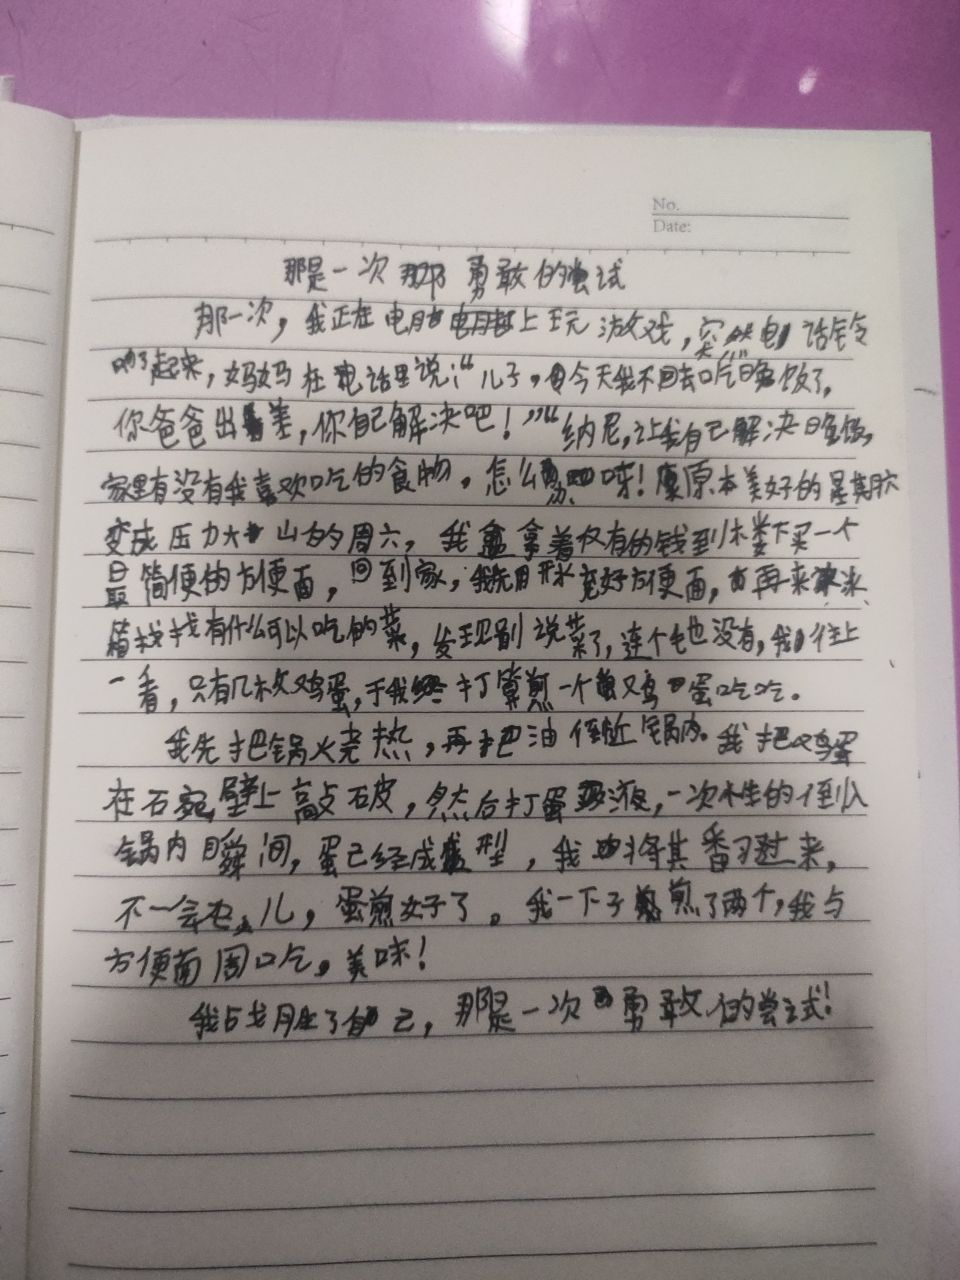 No.
Date:
那是一次 勇敢的尝试
那一次，我正在电脑上玩游戏，突然电话铃
响了起来，妈妈在电话里说：“儿子，今天我不回去吃晚饭了，
你爸爸出差，你自己解决吧！”“纳尼，让我自己解决晚饭，
家里有没有我喜欢吃的食物，怎么办呀！原本美好的星期六
变成压力大山的周六，我拿着仅有的钱到楼下买一个
最简便的方便面，回到家，我先用开水泡好方便面，再来冰
箱找找有什么可以吃的菜，发现别说菜了，连个毛也没有，我往上
一看，只有几枚鸡蛋，于我打算煎一个鸡蛋吃吃。
我先把锅烧热，再把油倒进锅内。我把鸡蛋
在石碗壁上敲破，然后打蛋液，一次性的倒入
锅内瞬间，蛋已经成型，我将其番习过来，
不一会儿，蛋煎好了。我一下子煎了两个，我与
方便面周口吃。美味！
我占戈月生了自己，那是一次勇敢的尝试！